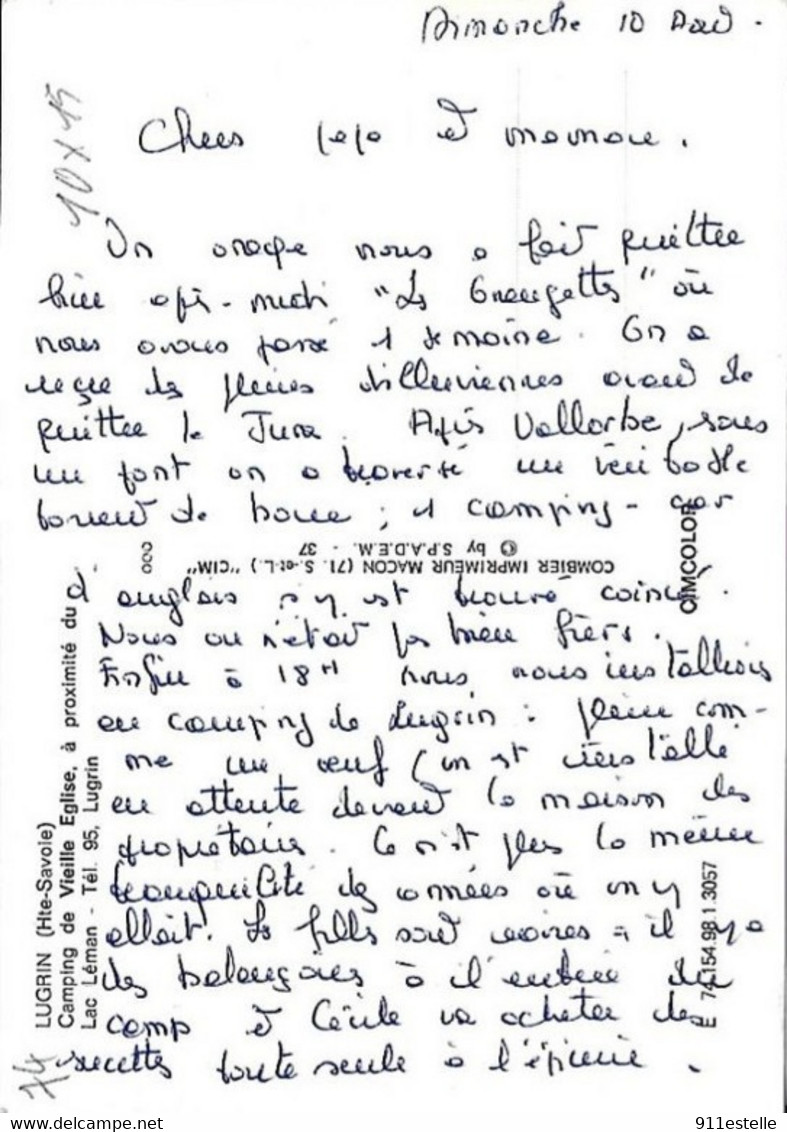 Dimanche 10 Août.
10 x 15
Chers papa et maman.
Un orage nous a fait quitter
hier après-midi "Les Grangettes" où
nous avons passé 1 semaine. On a
reçu des pluies diluviennes avant de
quitter le Jura. Après Vallorbe, sous
un pont on a traversé un véritable
torrent de boue ; 1 camping-car
COMBIER IMPRIMEUR MACON (71. S.-et-L.) "CIM"
© by S.P.A.D.E.M. - 37
CIMCOLOR
d'anglais s'y est trouvé coincé.
Nous on n'était pas bien fiers.
Enfin à 18H nous nous installions
au camping de Lugrin : plein com-
me un œuf (on est installé
en attente devant la maison des
propriétaires. Ce n'est plus la même
tranquilité des années où on y
allait. Les filles sont ravies = il y a
des balançoires à l'entrée du
camp et Cécile va acheter des
sucettes toute seule à l'épicerie.
LUGRIN (Hte-Savoie)
Camping de Vieille Eglise, à proximité du
Lac Léman - Tél. 95, Lugrin
E 74.154.98.1.3057
74
911estelle